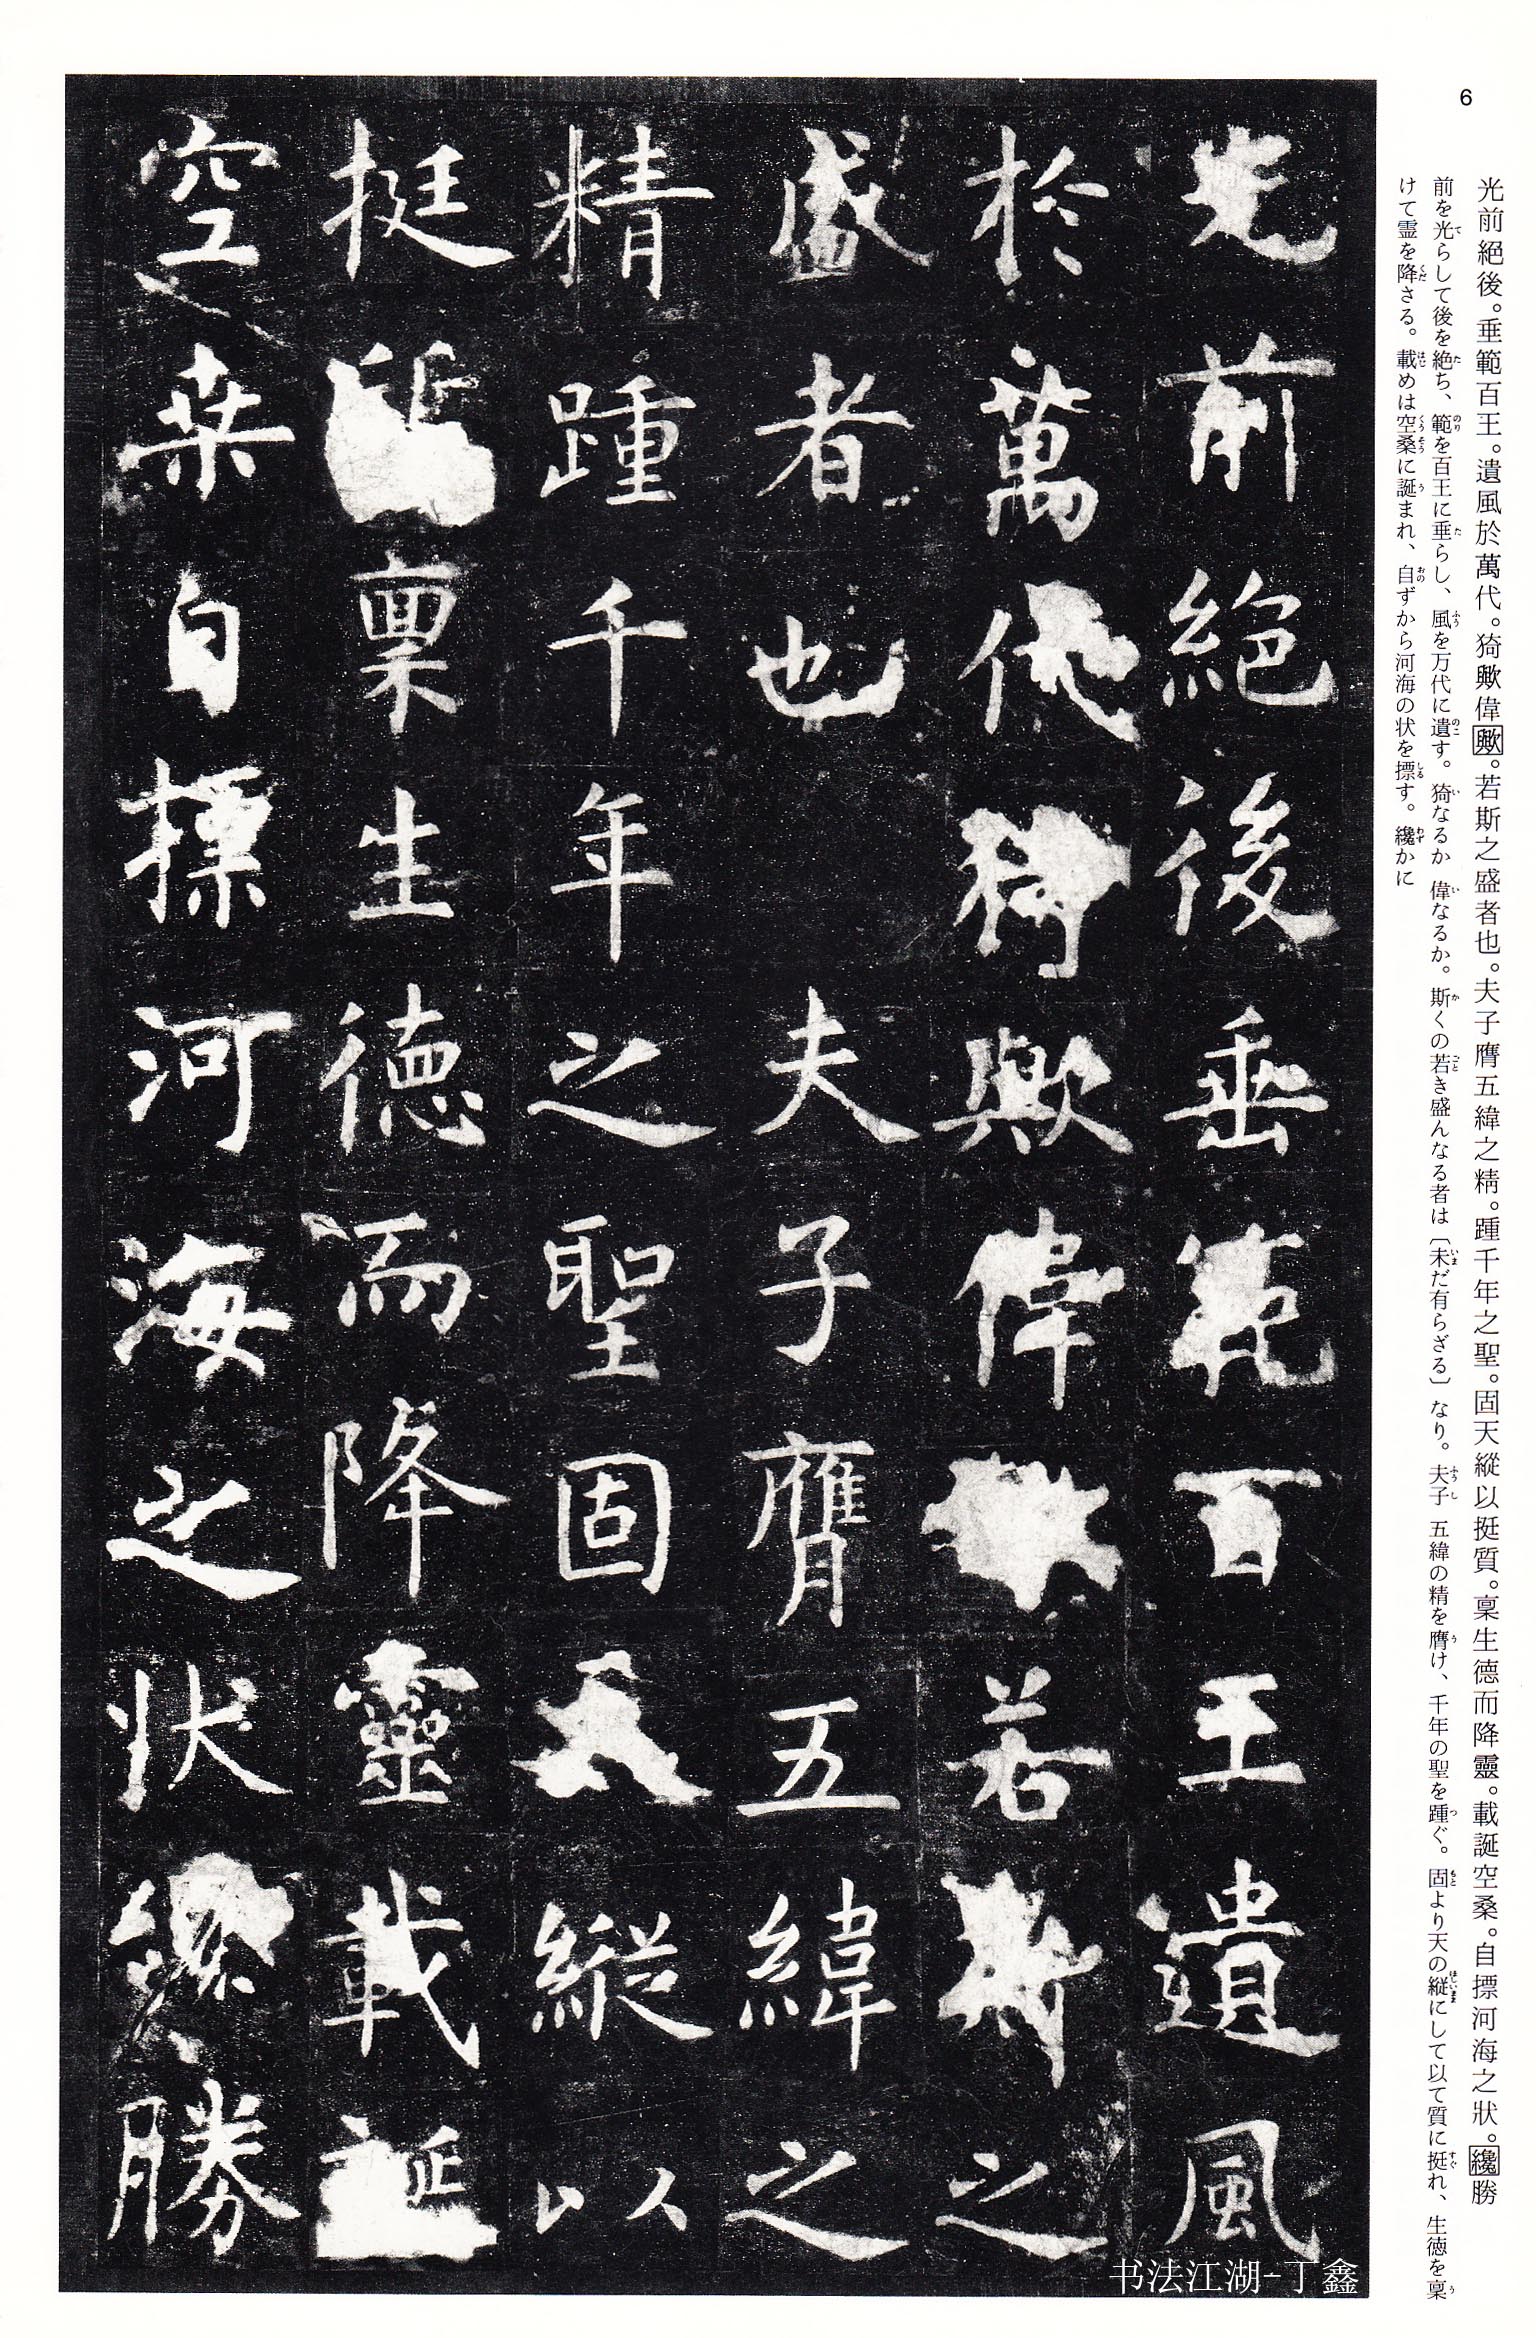 6
光前絕後。垂範百王。遺風於萬代。猗歟偉歟。若斯之盛者也。夫子膺五緯之精。踵千年之聖。固天縱以挺質。稟生德而降靈。載誕空桑。自摽河海之狀。纔勝
前を光らして後を絶ち、範を百王に垂らし、風を万代に遺す。猗なるか 偉なるか。斯くの若き盛んなる者は〔未だ有らざる〕なり。夫子 五緯の精を膺け、千年の聖を踵ぐ。固より天の縦にして以て質に挺れ、生徳を稟
けて霊を降さる。載めは空桑に誕まれ、自ずから河海の状を摽す。纔かに
光前絕後垂範百王遺風
於萬代猗歟偉若斯之
盛者也 夫子膺五緯之
精踵千年之聖固天縱以
挺質稟生德而降靈載誕
空桒自摽河海之狀纔勝
书法江湖-丁鑫